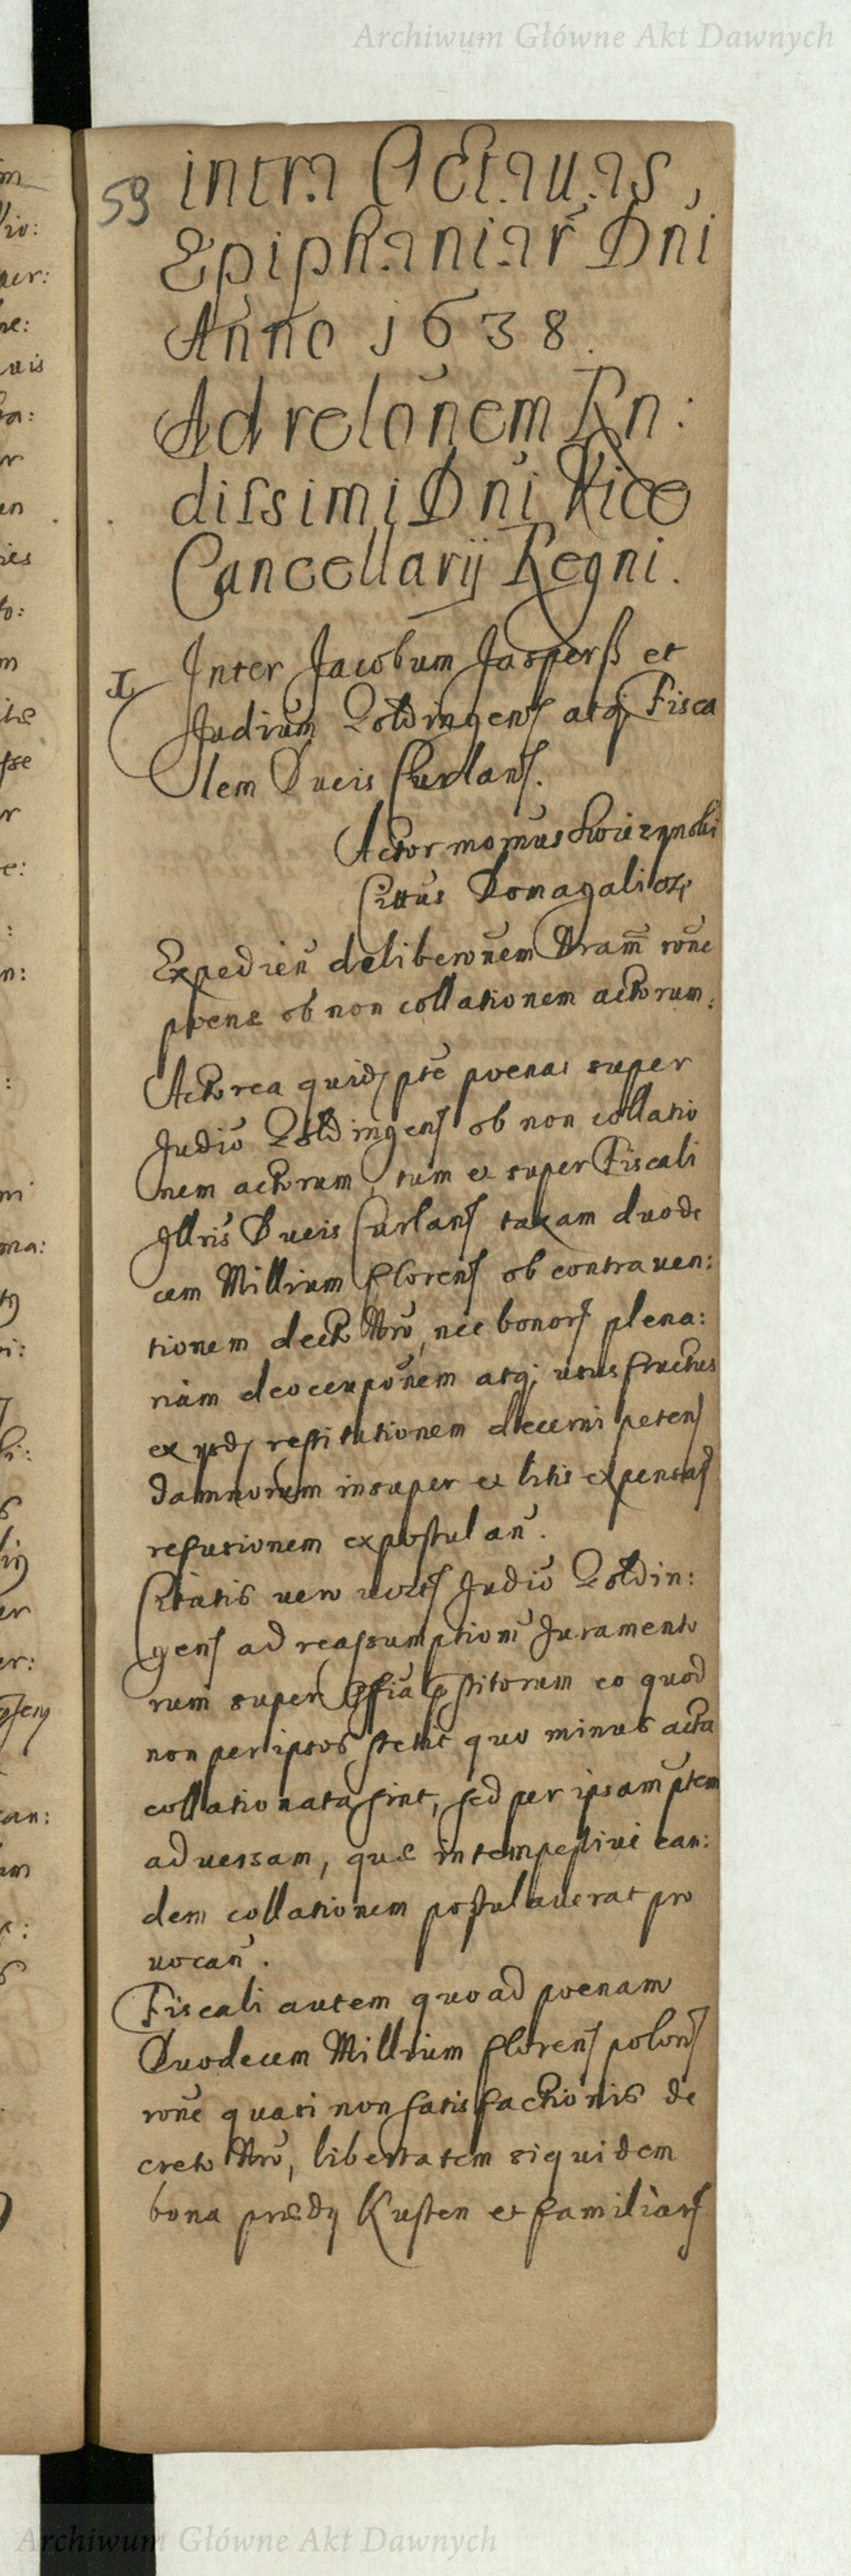 Archiwum Główne Akt Dawnych
59
intra Octauas,
Epiphaniar Dni
Anno 1638.
Ad relonem Rn:
dissimi Dni Vice
Cancellarij Regni.
I
Inter Jacobum Jasperß et
Judium Goldingens atq Fisca
lem Ducis Curlans.
Actor
Cittus Domagalicz
Expedien deliberonem Nram rone
poenæ ob non collationem actorum:
Actorea quid pte poenas super
Judio Goldingens ob non collatio
nem actorum, tum et super Fiscali
Illris Ducis Curlans taxam duode
cem Millium Florens ob contrauen:
tionem decto Nro, nec bonor plena:
riam deoccuponem atq ususfructus
ex ysd restitutionem decerni petens
damnorum insuper et litis expensas
refusionem expostulan.
Citatis uero Judio Goldin:
gens ad reassumptiom Juramento
rum super pstitorum eo quod
non per ipsos stetit quo minus acta
collationata sint, sed per ipsam ptem
aduersam, quæ intempestiue ean:
dem collationem postulauerat pro
uocan.
Fiscali autem quoad poenam
Duodecem Millium florens polons
rone quasi non satisfactionis de
creto Nro, libertatem siquidem
bona prædy Kusten et familiars
Archiwum Główne Akt Dawnych